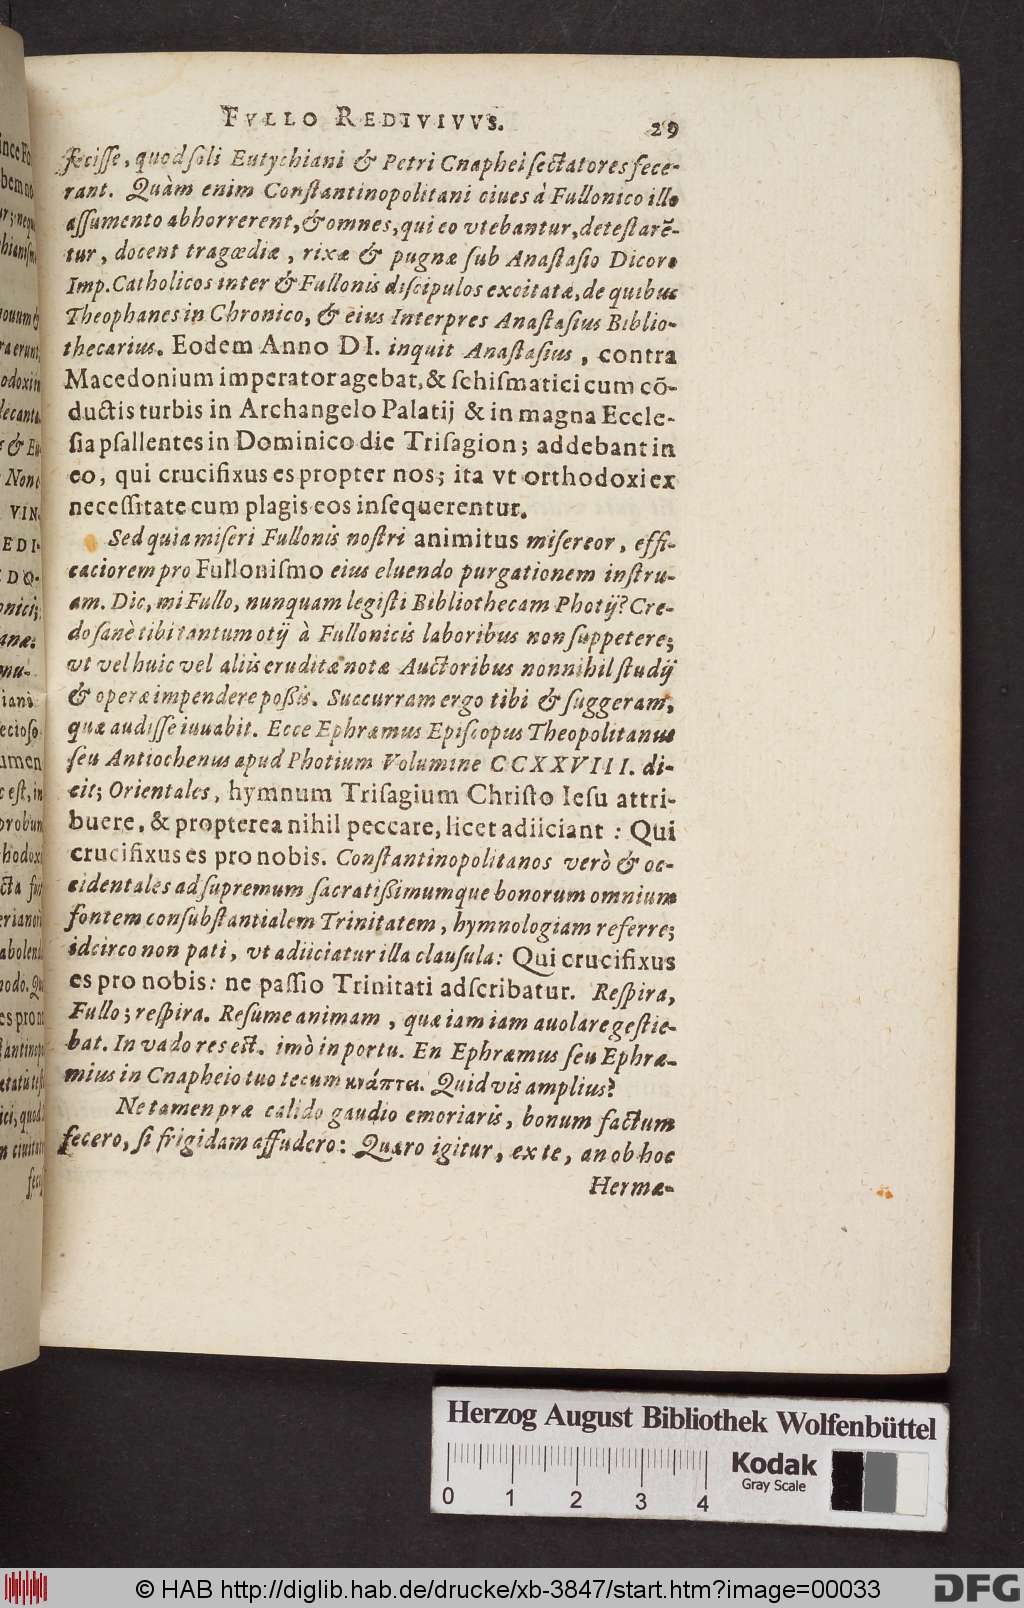 FVLLO REDIVIVVS. 29
feciſſe, quod ſoli Eutychiani & Petri Cnaphei ſectatores fece-
rant. Quàm enim Conſtantinopolitani ciues à Fullonico illo
aſſumento abhorrerent, & omnes, qui eo vtebantur, deteſtarẽ-
tur, docent tragœdiæ, rixæ & pugnæ ſub Anaſtaſio Dicoro
Imp. Catholicos inter & Fullonis diſcipulos excitatæ, de quibus
Theophanes in Chronico, & eius Interpres Anaſtaſius Biblio-
thecarius. Eodem Anno DI. inquit Anaſtaſius, contra
Macedonium imperator agebat, & ſchiſmatici cum cõ-
ductis turbis in Archangelo Palatij & in magna Eccle-
ſia pſallentes in Dominico die Triſagion; addebant in
eo, qui crucifixus es propter nos; ita vt orthodoxi ex
neceſſitate cum plagis eos inſequerentur.
Sed quia miſeri Fullonis noſtri animitus miſereor, effi-
caciorem pro Fulloniſmo eius eluendo purgationem inſtru-
am. Dic, mi Fullo, nunquam legiſti Bibliothecam Photij? Cre-
do ſanè tibi tantum otij à Fullonicis laboribus non ſuppetere;
vt vel huic vel aliis eruditæ notæ Auctoribus nonnihil ſtudij
& operæ impendere poßis. Succurram ergo tibi & ſuggeram,
quæ audiſſe iuuabit. Ecce Ephræmus Epiſcopus Theopolitanus
ſeu Antiochenus apud Photium Volumine CCXXVIII. di-
cit; Orientales, hymnum Triſagium Chriſto Ieſu attri-
buere, & propterea nihil peccare, licet adiiciant : Qui
crucifixus es pro nobis. Conſtantinopolitanos verò & oc-
cidentales ad ſupremum ſacratißimumque bonorum omnium
fontem conſubſtantialem Trinitatem, hymnologiam referre;
idcirco non pati, vt adiiciatur illa clauſula: Qui crucifixus
es pro nobis: ne paſſio Trinitati adſcribatur. Reſpira,
Fullo; reſpira. Reſume animam, quæ iam iam auolare geſtie-
bat. In vado res eſt. imò in portu. En Ephræmus ſeu Ephræ-
mius in Cnapheio tuo tecum κνάπτει. Quid vis amplius?
Ne tamen præ calido gaudio emoriaris, bonum factum
fecero, ſi frigidam affudero: Quæro igitur, ex te, an ob hoc
Hermæ-
Herzog August Bibliothek Wolfenbüttel
Kodak
Gray Scale
0 1 2 3 4
© HAB http://diglib.hab.de/drucke/xb-3847/start.htm?image=00033
DFG